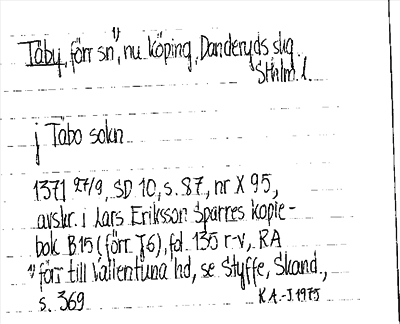 Täby, förr sn¹⁾, nu köping, Danderyds slg
Sthlm. l.
j Täbo sokn
1371 27/9, SD 10, s. 87, nr X 95,
avskr. i Lars Eriksson Sparres kopie-
bok B15 (förr J6), fol. 135 r-v, RA
¹⁾ förr till Vallentuna hd, se Styffe, Skand.,
s. 369 K.A.-J. 1975